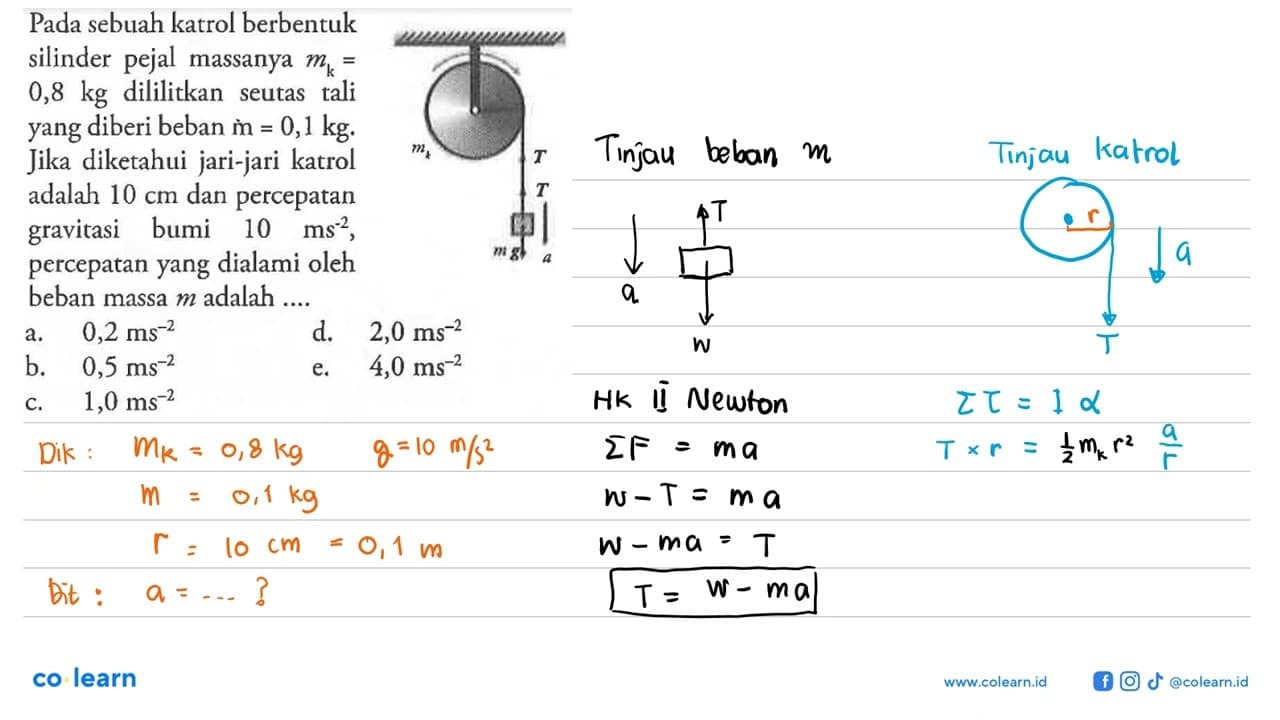 Pada sebuah katrol berbentuk
silinder pejal massanya mₖ =
0,8 kg dililitkan seutas tali
yang diberi beban ṁ = 0,1 kg.
Jika diketahui jari-jari katrol
adalah 10 cm dan percepatan
gravitasi bumi 10 ms⁻²,
percepatan yang dialami oleh
beban massa m adalah ....
a. 0,2 ms⁻² d. 2,0 ms⁻²
b. 0,5 ms⁻² e. 4,0 ms⁻²
c. 1,0 ms⁻²
mₖ
T
T
m g a
Dik : mₖ = 0,8 kg g = 10 m/s²
m = 0,1 kg
r = 10 cm = 0,1 m
Dit : a = .... ?
Tinjau beban m
T
a
W
HK II Newton
ΣF = ma
w - T = ma
w - ma = T
T = w - ma
Tinjau katrol
r
a
T
Στ = I α
T × r = ½ mₖ r² a/r
co learn
www.colearn.id
@colearn.id